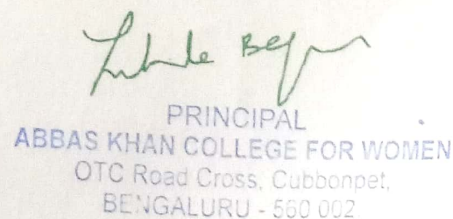 PRINCIPAL
ABBAS KHAN COLLEGE FOR WOMEN
OTC Road Cross, Cubbonpet,
BENGALURU - 560 002